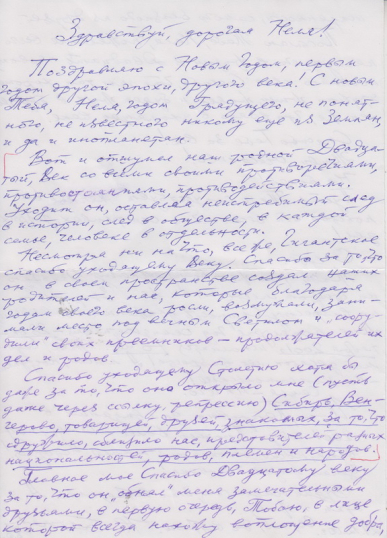 Здравствуй, дорогая Неля!
Поздравляю с Новым Годом, первым
годом другой эпохи, другого века! С новым
Тебя, Неля, годом Грядущего, не понят-
ного, не известного никому еще из Землян,
и да и инопланетян.
Вот и отшумел наш родной Двадца-
тый Век со всеми своими противоречиями,
противостояниями, противодействиями.
Уходит он, оставляя неистребимый след
в истории, след в обществе, в каждой
семье, человеке в отдельности.
Несмотря ни на что, все же, Гигантское
спасибо уходящему Веку. Спасибо за то, что
он в своем пространстве создал наших
родителей и нас, которые благодаря
годам своего века росли, возмужали, зани-
мали место под вечным Светилом и "соору-
дили" своих преемников – продолжателей их
дел и родов.
Спасибо уходящему Столетию хотя бы
даже за то, что оно открыло мне (пусть
даже через ссылку, репрессию) Сибирь, Вен-
герово, товарищей, друзей, знакомых, за то, что
сдружило, сблизило нас, представителей разных
национальностей, родов, племен и народов.
Главное мое Спасибо Двадцатому веку
за то, что он меня замечательными
друзьями, в первую очередь, Тобою, в лице
которой всегда нахожу воплощение добра,